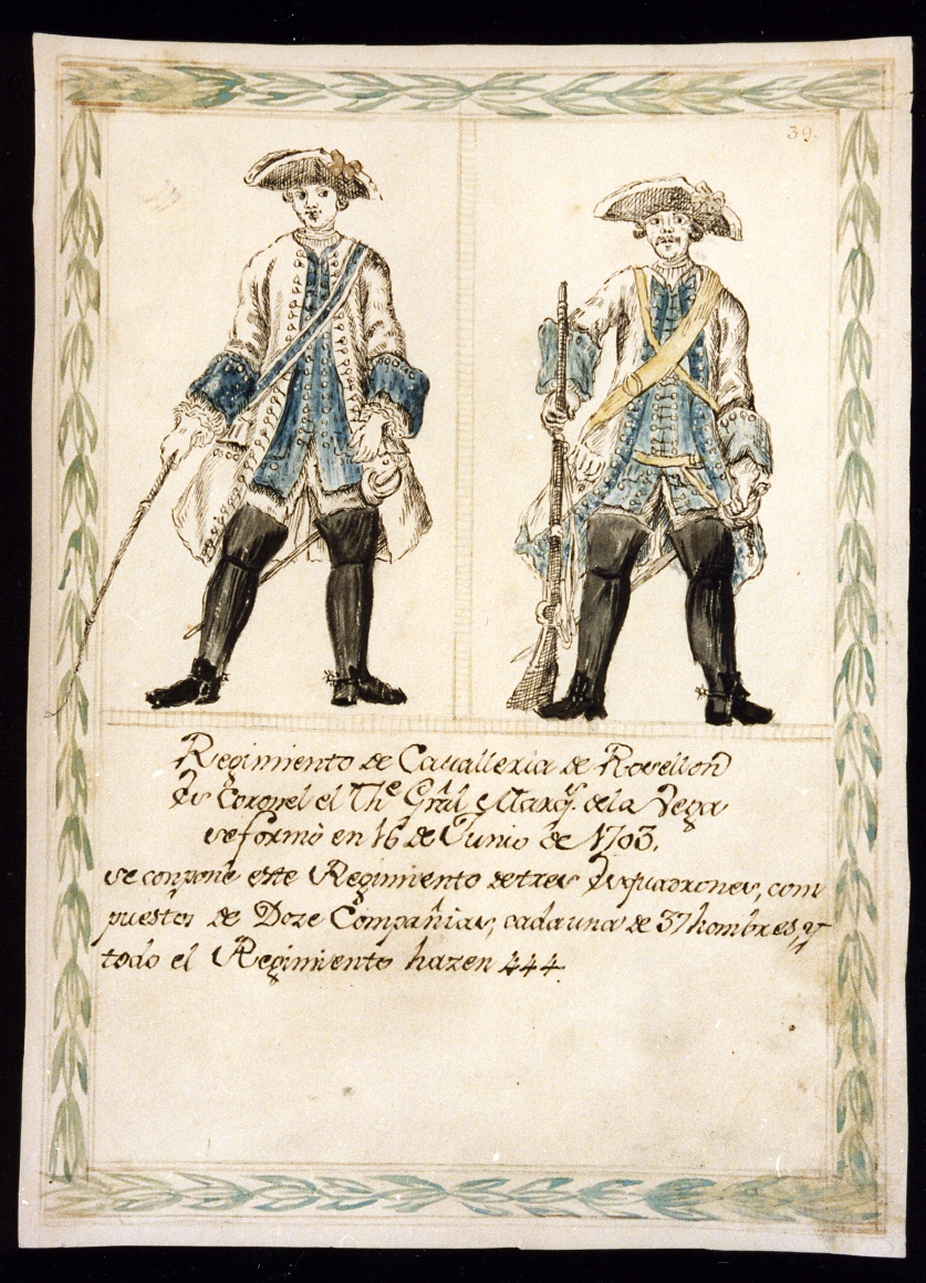 39.
Regimiento de Cavalleria de Rosellon
Su Coronel el Th.e Grãl Marq.s de la Vega
se formò en 16 de Junio de 1703.
se conpone este Regimiento de tres Esquadrones, com
puestos de Doze Compañias, cada una de 37 hombres, y
todo el Regimiento hazen 444.